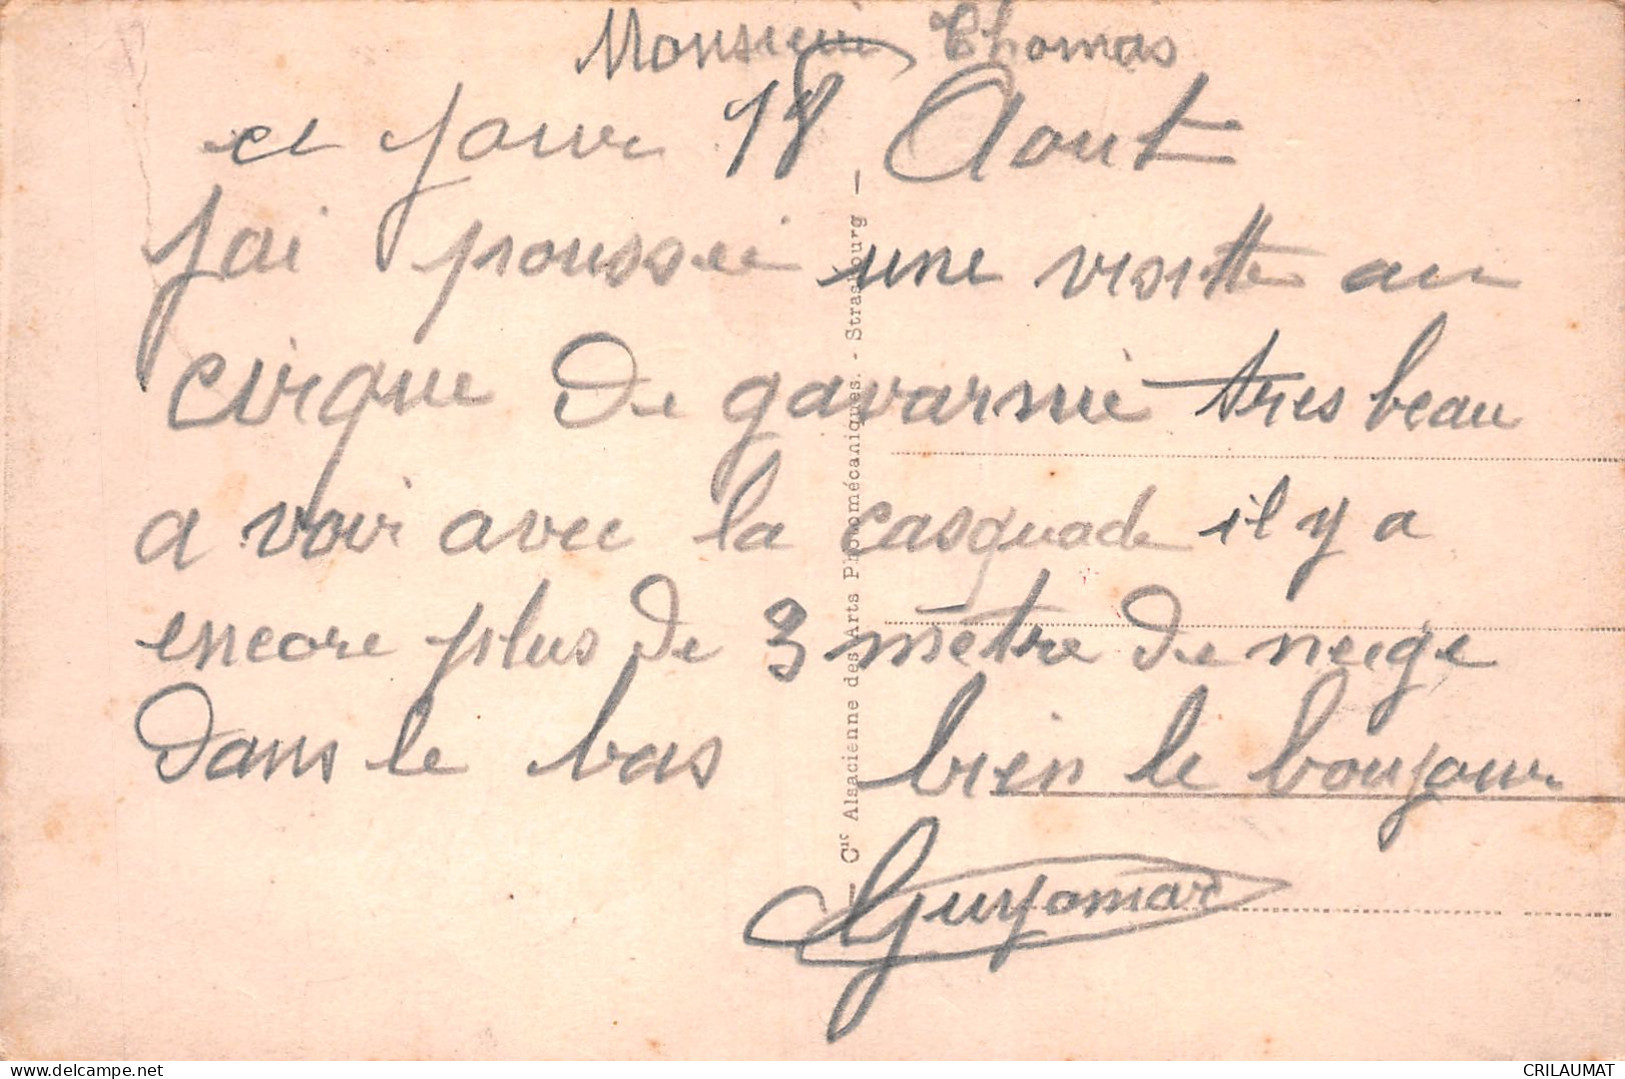 Monsieur Thomas
ce jour 18 Aout
jai poussei une visitte au
cirque de gavarnie tres beau
a voir avec la casquade il y a
encore plus de 3 mètre de neige
dans le bas bien le boujour
Guyomar
— Cie Alsacienne des Arts Photomécaniques. - Strasbourg —
CRILAUMAT